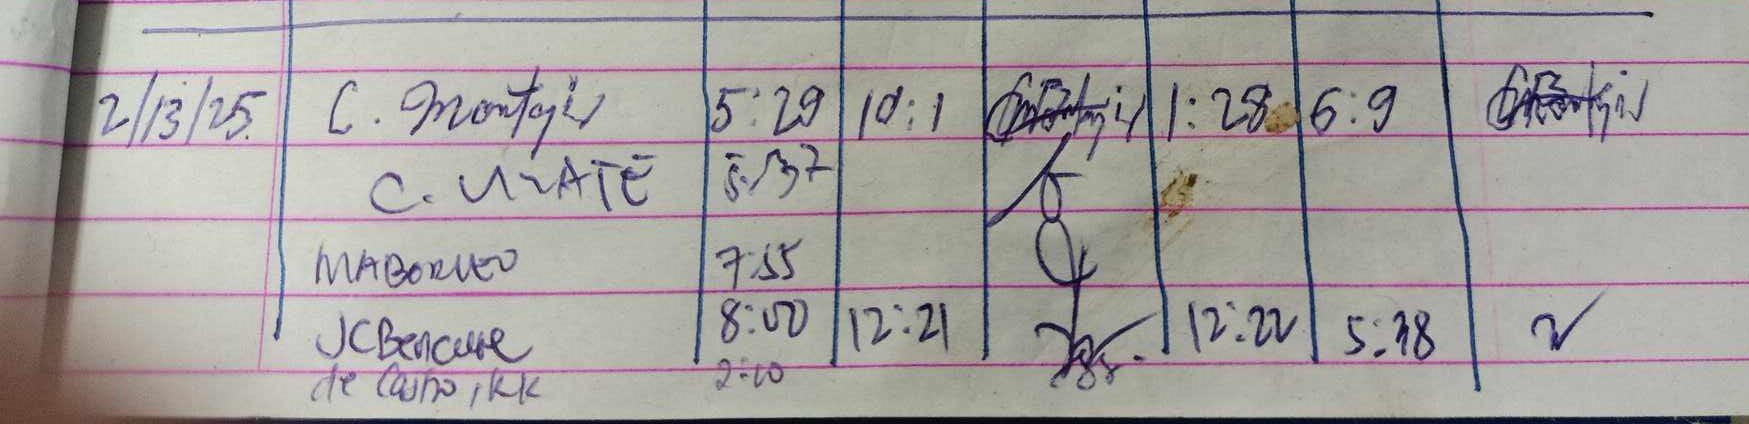 2/13/25 C. Montgir 5:29 10:1 1:28 6:9
C. URATE 5:37
MABORNEO 7:55
JCBencure 8:00 12:21 12:22 5:38
de Castro, KK 2:10